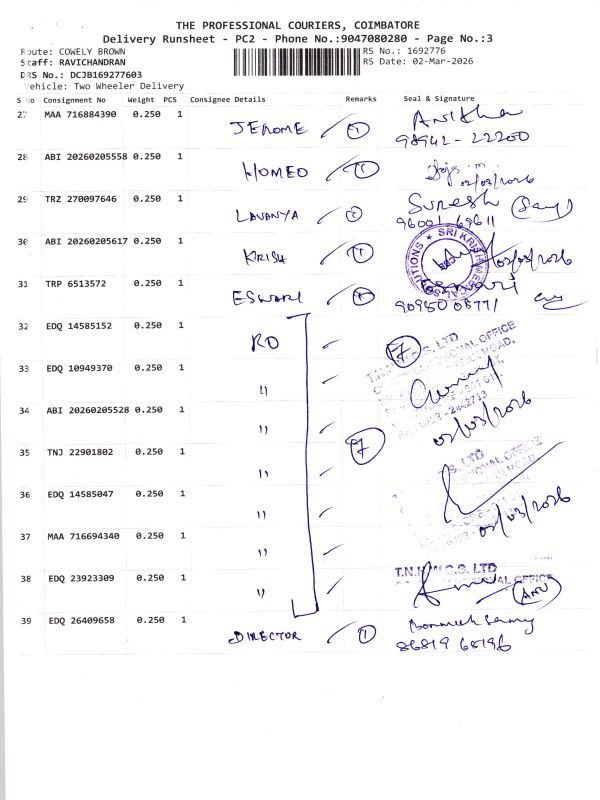 THE PROFESSIONAL COURIERS, COIMBATORE
Delivery Runsheet - PC2 - Phone No.:9047080280 - Page No.:3
Route: COWELY BROWN RS No.: 1692776
Staff: RAVICHANDRAN RS Date: 02-Mar-2026
DRS No.: DCJB169277603
Vehicle: Two Wheeler Delivery
S No Consignment No Weight PCS Consignee Details Remarks Seal & Signature
27 MAA 716884390 0.250 1 JEROME 1 Anitha
98941-22200
28 ABI 20260205558 0.250 1 HOMEO 1
02/03/2026
29 TRZ 270097646 0.250 1 LAVANYA Suresh
96001 69611
30 ABI 20260205617 0.250 1 KRISH 1 SRI KRISH MEDICAL 02/03/2026
31 TRP 6513572 0.250 1 ESWARI Eswari
90950 08771
32 EDQ 14585152 0.250 1 RO 7
33 EDQ 10949370 0.250 1 "
34 ABI 20260205528 0.250 1 " 02/03/2026
35 TNJ 22901802 0.250 1 " 7
36 EDQ 14585047 0.250 1 " 02/03/2026
37 MAA 716694340 0.250 1 "
38 EDQ 23923309 0.250 1 " LTD
OFFICE
ANU
39 EDQ 26409658 0.250 1 DIRECTOR 1
86819 68196